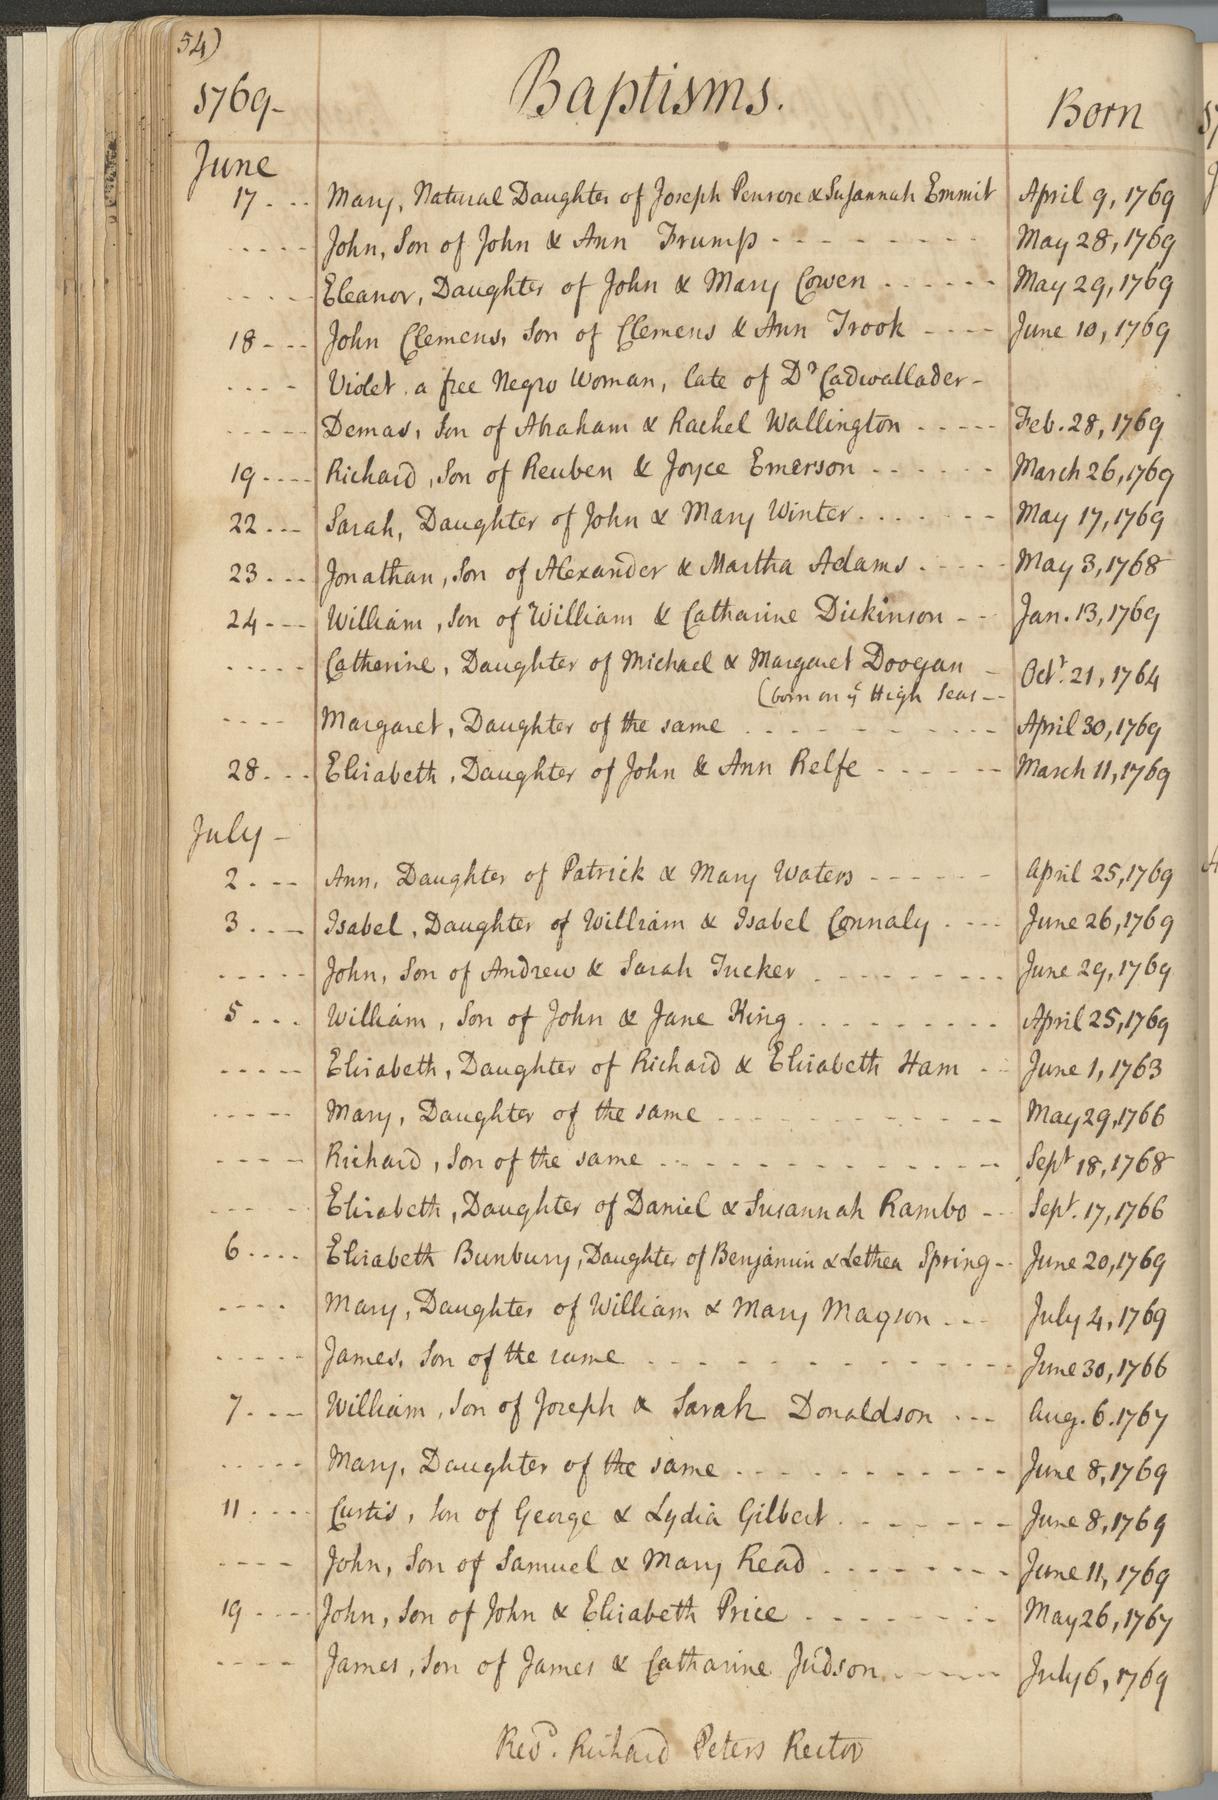 54)
1769- Baptisms. Born
June
17 - - - Mary, Natural Daughter of Joseph Penrose & Susannah Emmit April 9, 1769
- - - - - John, Son of John & Ann Trump - - - - - - - - - May 28, 1769
- - - - - Eleanor, Daughter of John & Mary Cowen - - - - - - May 29, 1769
18 - - - John Clemens, Son of Clemens & Ann Trook - - - - June 10, 1769
- - - - Violet, a free Negro Woman, late of Dr Cadwallader -
- - - - - Demas, Son of Abraham & Rachel Wallington - - - - - Feb. 28, 1769
19 - - - - Richard, Son of Reuben & Joyce Emerson - - - - - - March 26, 1769
22 - - - Sarah, Daughter of John & Mary Winter - - - - - - - May 17, 1769
23 - - - Jonathan, Son of Alexander & Martha Adams - - - - - May 3, 1768
24 - - - William, Son of William & Catharine Dickinson - - Jan. 13, 1769
- - - - - Catherine, Daughter of Michael & Margaret Doogan - Octr. 21, 1764
(born on ye High Seas - -
- - - - Margaret, Daughter of the same - - - - - - - - - - - April 30, 1769
28 - - - Elisabeth, Daughter of John & Ann Relfe - - - - - - March 11, 1769
July -
2 - - - Ann, Daughter of Patrick & Mary Waters - - - - - - April 25, 1769
3 - - - Isabel, Daughter of William & Isabel Connaly - - - - June 26, 1769
- - - - - John, Son of Andrew & Sarah Tucker - - - - - - - - - June 29, 1769
5 - - - William, Son of John & Jane King - - - - - - - - - April 25, 1769
- - - - - Elisabeth, Daughter of Richard & Elisabeth Ham - - June 1, 1763
- - - - - Mary, Daughter of the same - - - - - - - - - - - - May 29, 1766
- - - - Richard, Son of the same - - - - - - - - - - - - - - Sept 18, 1768
- - - - Elisabeth, Daughter of Daniel & Susannah Rambo - - Sept. 17, 1766
6 - - - - Elisabeth Bunbury, Daughter of Benjamin & Lethea Spring - - June 20, 1769
- - - - Mary, Daughter of William & Mary Magson - - - July 4, 1769
- - - - - James, Son of the same - - - - - - - - - - - - - - June 30, 1766
7 - - - William, Son of Joseph & Sarah Donaldson - - - Aug. 6. 1767
- - - - - Mary, Daughter of the same - - - - - - - - - - - June 8, 1769
11 - - - - Curtis, Son of George & Lydia Gilbert - - - - - - - June 8, 1769
- - - - John, Son of Samuel & Mary Read - - - - - - - - June 11, 1769
19 - - - - John, Son of John & Elisabeth Price - - - - - - - - May 26, 1767
- - - - James, Son of James & Catharine Judson - - - - - July 6, 1769
Revd. Richard Peters Rector